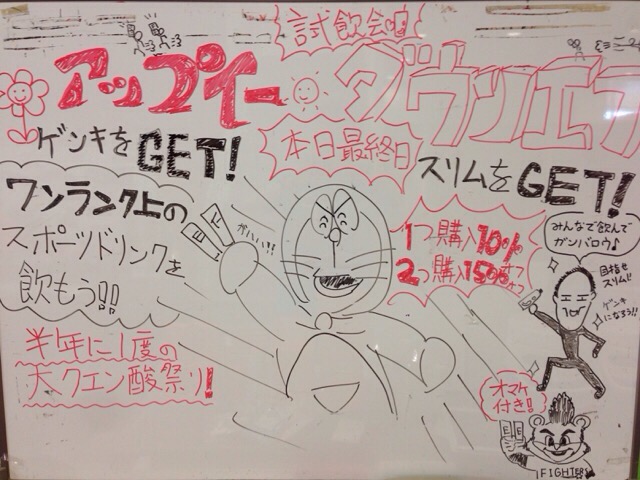 試飲会
アップイー
ダウンエフ
ゲンキをGET!
本日最終日
スリムをGET!
ワンランク上の
スポーツドリンクを
飲もう!!
ガハハ!!
1つ購入10%
2つ購入15%オフ
みんなで飲んで
ガンバロウ♪
目指せ
スリム!!
ゲンキ
になろう!!
半年に1度の
大クエン酸祭り!
オマケ
付き!!
FIGHTERS